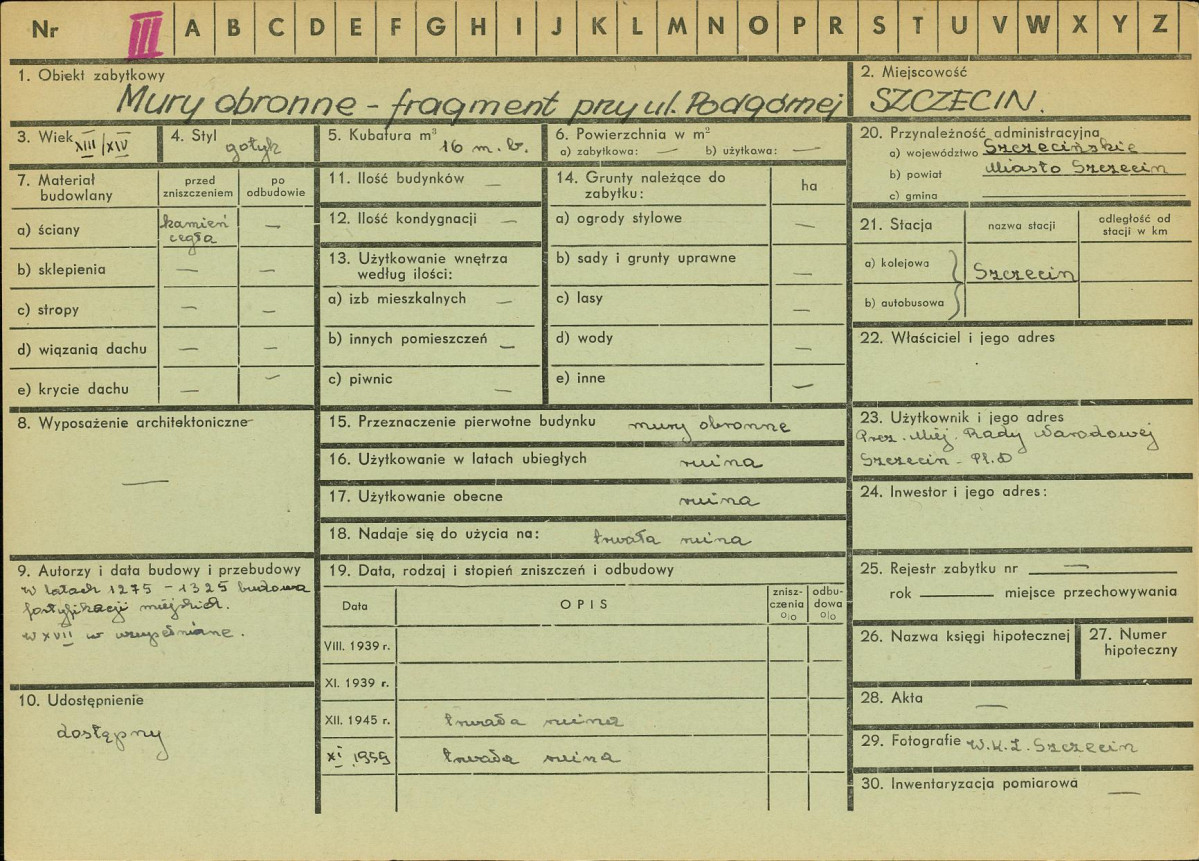 Nr III A B C D E F G H I J K L M N O P R S T U V W X Y Z
1. Obiekt zabytkowy
Mury obronne – fragment przy ul. Podgórnej
2. Miejscowość
SZCZECIN.
3. Wiek XIII/XIV
4. Styl gotyk
5. Kubatura m³
16 m. b.
6. Powierzchnia w m²
a) zabytkowa: — b) użytkowa: —
7. Materiał budowlany
przed zniszczeniem
po odbudowie
a) ściany kamień cegła —
b) sklepienia — —
c) stropy — —
d) wiązania dachu — —
e) krycie dachu — —
8. Wyposażenie architektoniczne
—
9. Autorzy i data budowy i przebudowy
w latach 1275 – 1325 budowa
fortyfikacji miejskich.
w XVII w uzupełniane.
10. Udostępnienie
dostępny
11. Ilość budynków —
12. Ilość kondygnacji —
13. Użytkowanie wnętrza
według ilości:
a) izb mieszkalnych —
b) innych pomieszczeń —
c) piwnic —
14. Grunty należące do
zabytku:
ha
a) ogrody stylowe —
b) sady i grunty uprawne —
c) lasy —
d) wody —
e) inne —
15. Przeznaczenie pierwotne budynku mury obronne
16. Użytkowanie w latach ubiegłych ruina
17. Użytkowanie obecne ruina
18. Nadaje się do użycia na: trwała ruina
19. Data, rodzaj i stopień zniszczeń i odbudowy
Data
OPIS
znisz-
czenia
%
odbu-
dowa
%
VIII. 1939 r.
XI. 1939 r.
XII. 1945 r. trwała ruina
XI 1959 trwała ruina
20. Przynależność administracyjna
a) województwo Szczecińskie
b) powiat Miasto Szczecin
c) gmina
21. Stacja
nazwa stacji
odległość od
stacji w km
a) kolejowa
Szczecin
b) autobusowa
22. Właściciel i jego adres
23. Użytkownik i jego adres
Prez. Miej. Rady Narodowej
Szczecin – Pl.
24. Inwestor i jego adres:
25. Rejestr zabytku nr —
rok miejsce przechowywania
26. Nazwa księgi hipotecznej
27. Numer
hipoteczny
28. Akta —
29. Fotografie W.K.Z. Szczecin
30. Inwentaryzacja pomiarowa —